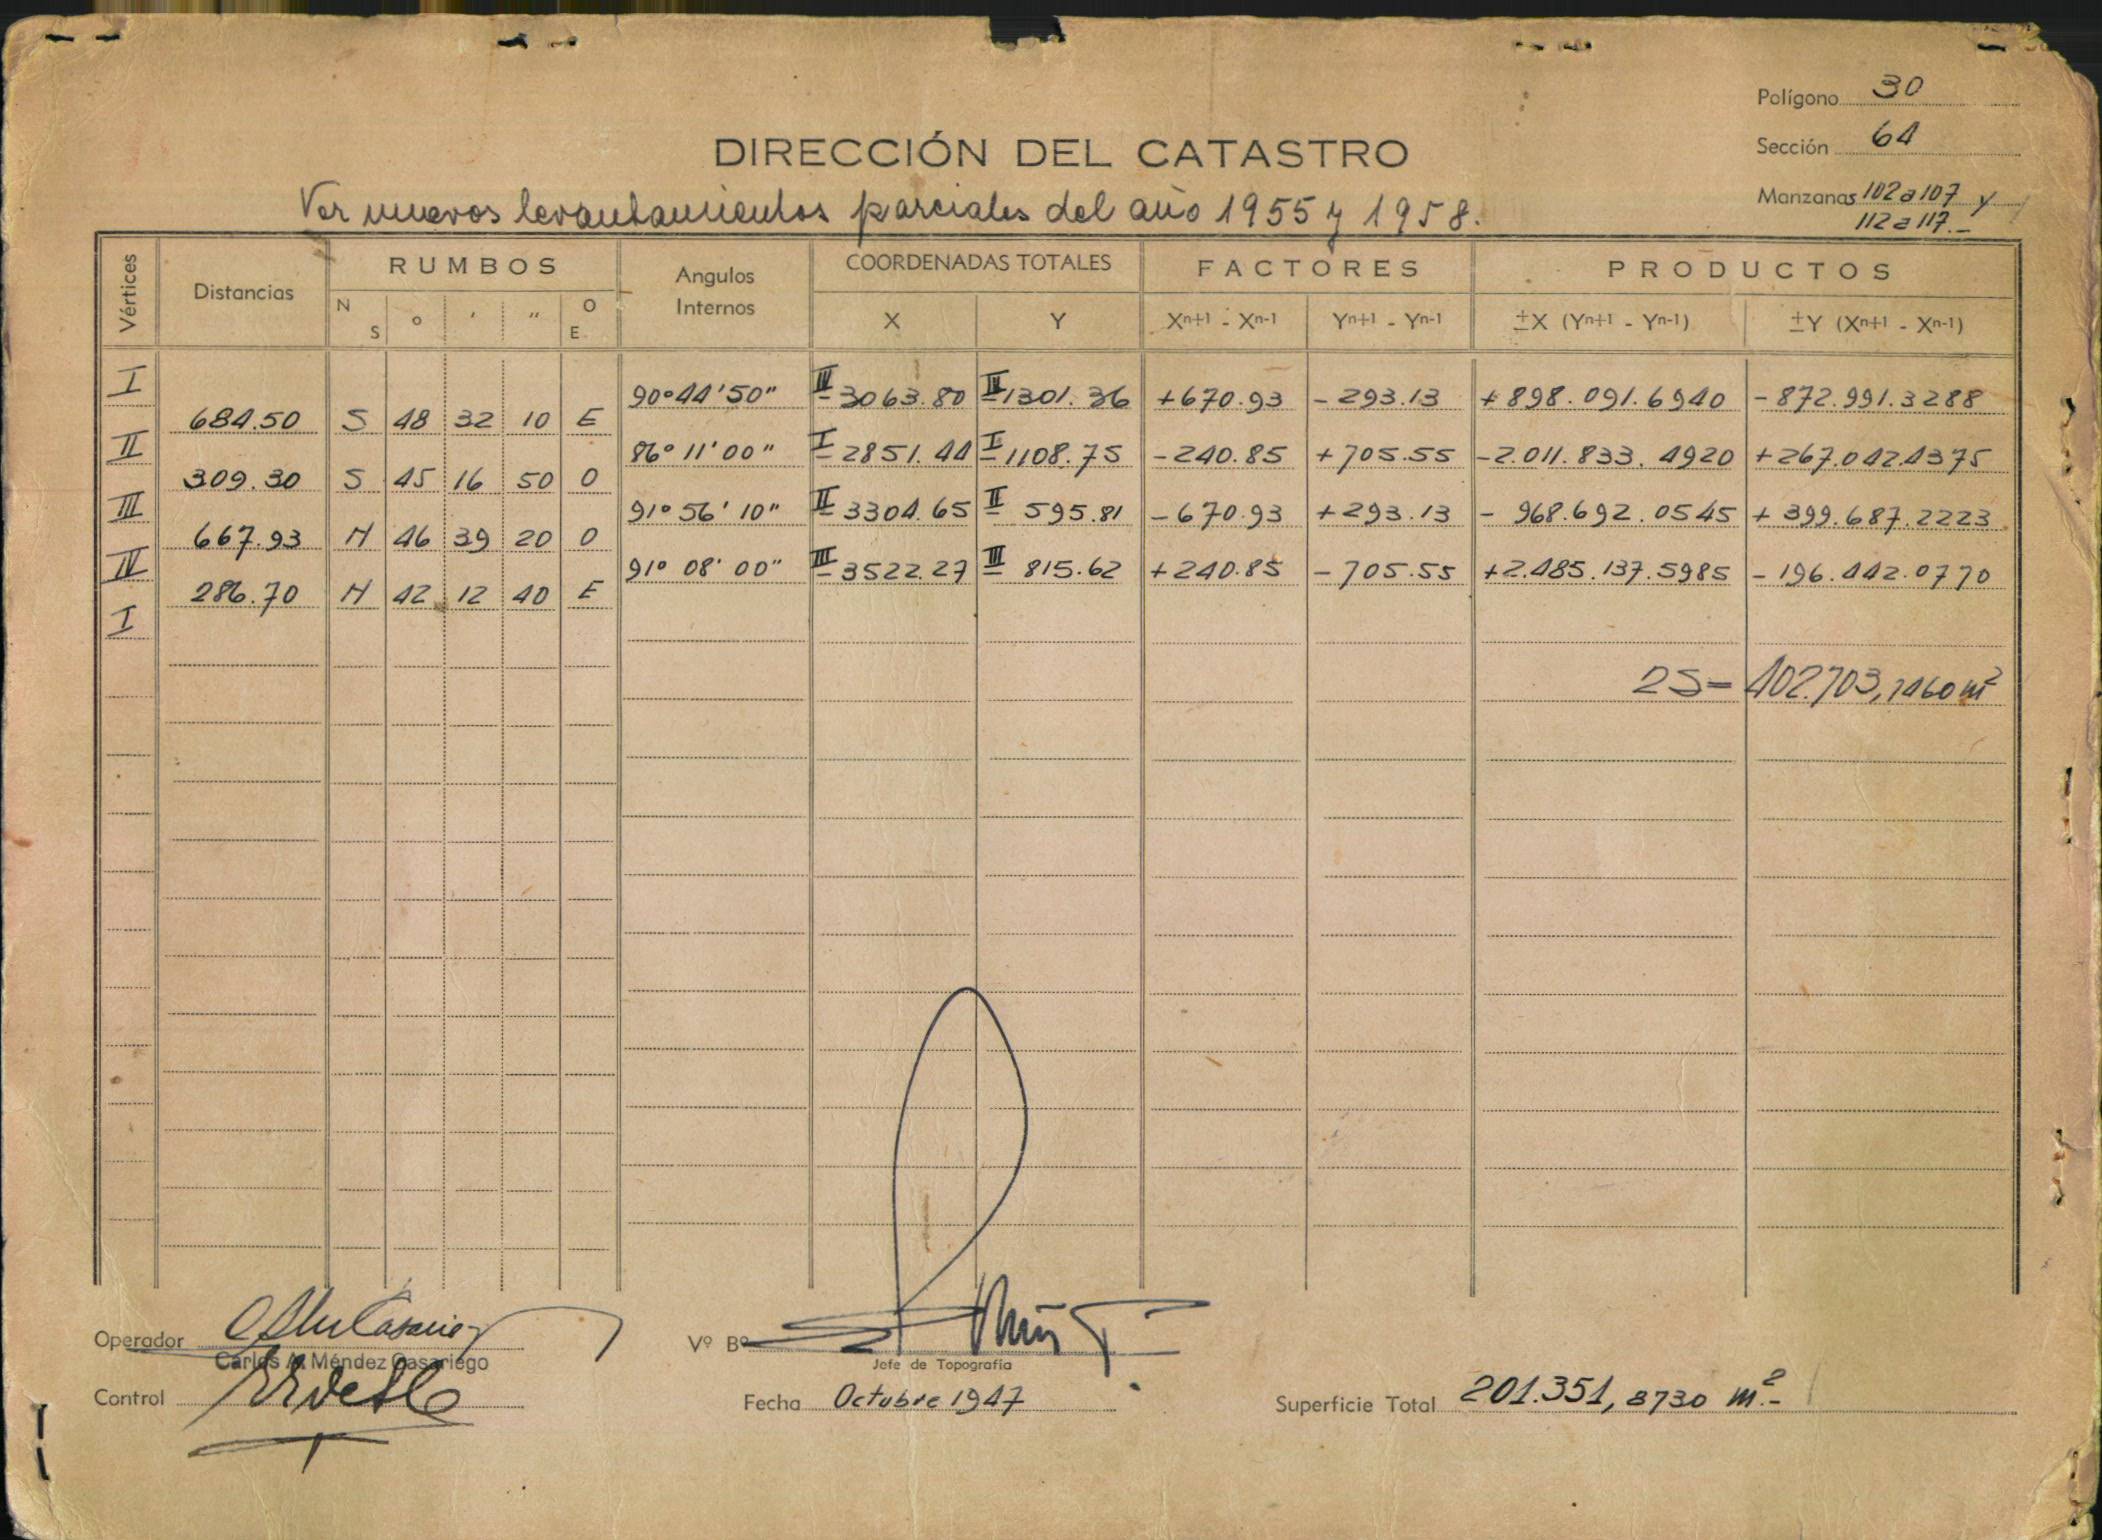 Polígono 30
DIRECCIÓN DEL CATASTRO
Sección 64
Ver nuevos levantamientos parciales del año 1955 y 1958.
Manzanas 102 a 107 y
112 a 117.-
Vértices Distancias RUMBOS Angulos Internos COORDENADAS TOTALES FACTORES PRODUCTOS
N S ° ' " O E X Y Xn+1 - Xn-1 Yn+1 - Yn-1 ±X (Yn+1 - Yn-1) ±Y (Xn+1 - Xn-1)
I 90°44'50" III -3063.80 III -1301.36 +670.93 -293.13 +898.091.6940 -872.991.3288
684.50 S 48 32 10 E
II 86°11'00" I -2851.44 I -1108.75 -240.85 +705.55 -2.011.833.4920 +267.042.4375
309.30 S 45 16 50 O
III 91°56'10" II -3304.65 II 595.81 -670.93 +293.13 -968.692.0545 +399.687.2223
667.93 N 46 39 20 O
IV 91°08'00" III -3522.27 III 815.62 +240.85 -705.55 +2.485.137.5985 -196.442.0770
286.70 N 42 12 40 E
I
2S= 402.703,7460 m²
Operador
Carlos A. Méndez Casariego
Vº Bº
Jefe de Topografía
Control
Fecha Octubre 1947
Superficie Total 201.351,8730 m².-